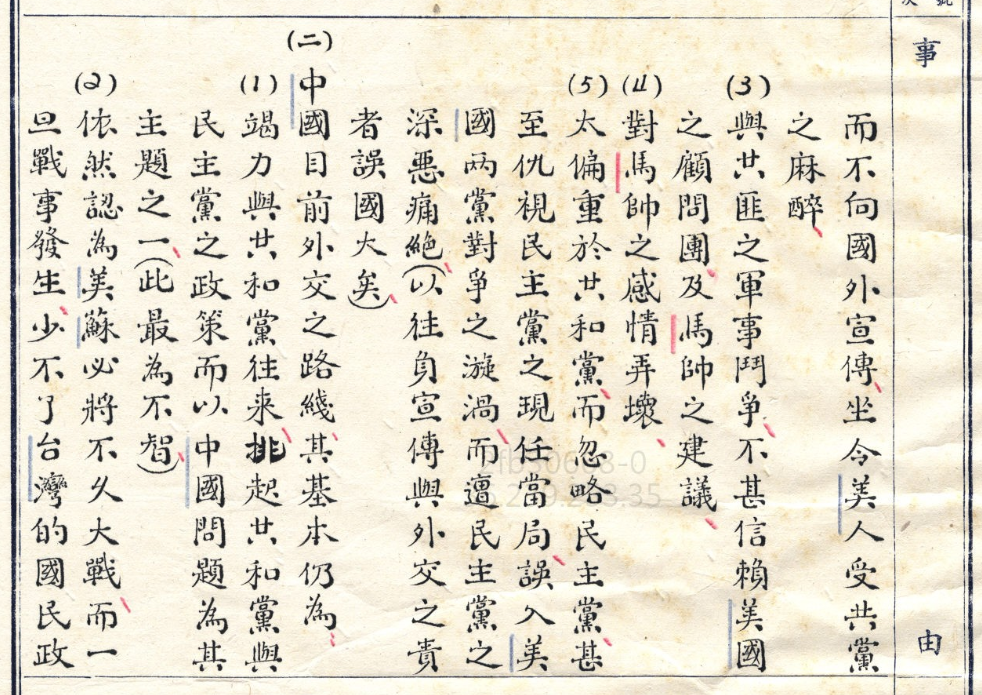 事由
而不向國外宣傳坐令美人受共黨
之麻醉
(3)與共匪之軍事鬥爭不甚信賴美國
之顧問團及馬帥之建議
(4)對馬帥之感情弄壞
(5)太偏重於共和黨而忽略民主黨甚
至仇視民主黨之現任當局誤入美
國两黨對爭之漩渦而遭民主黨之
深惡痛絕(以往負宣傳與外交之責
者誤國大矣)
(二)中國目前外交之路綫其基本仍為
(1)竭力與共和黨往来挑起共和黨與
民主黨之政策而以中國問題為其
主題之一(此最為不智)
(2)依然認為美蘇必將不久大戰而一
旦戰事發生少不了台灣的國民政